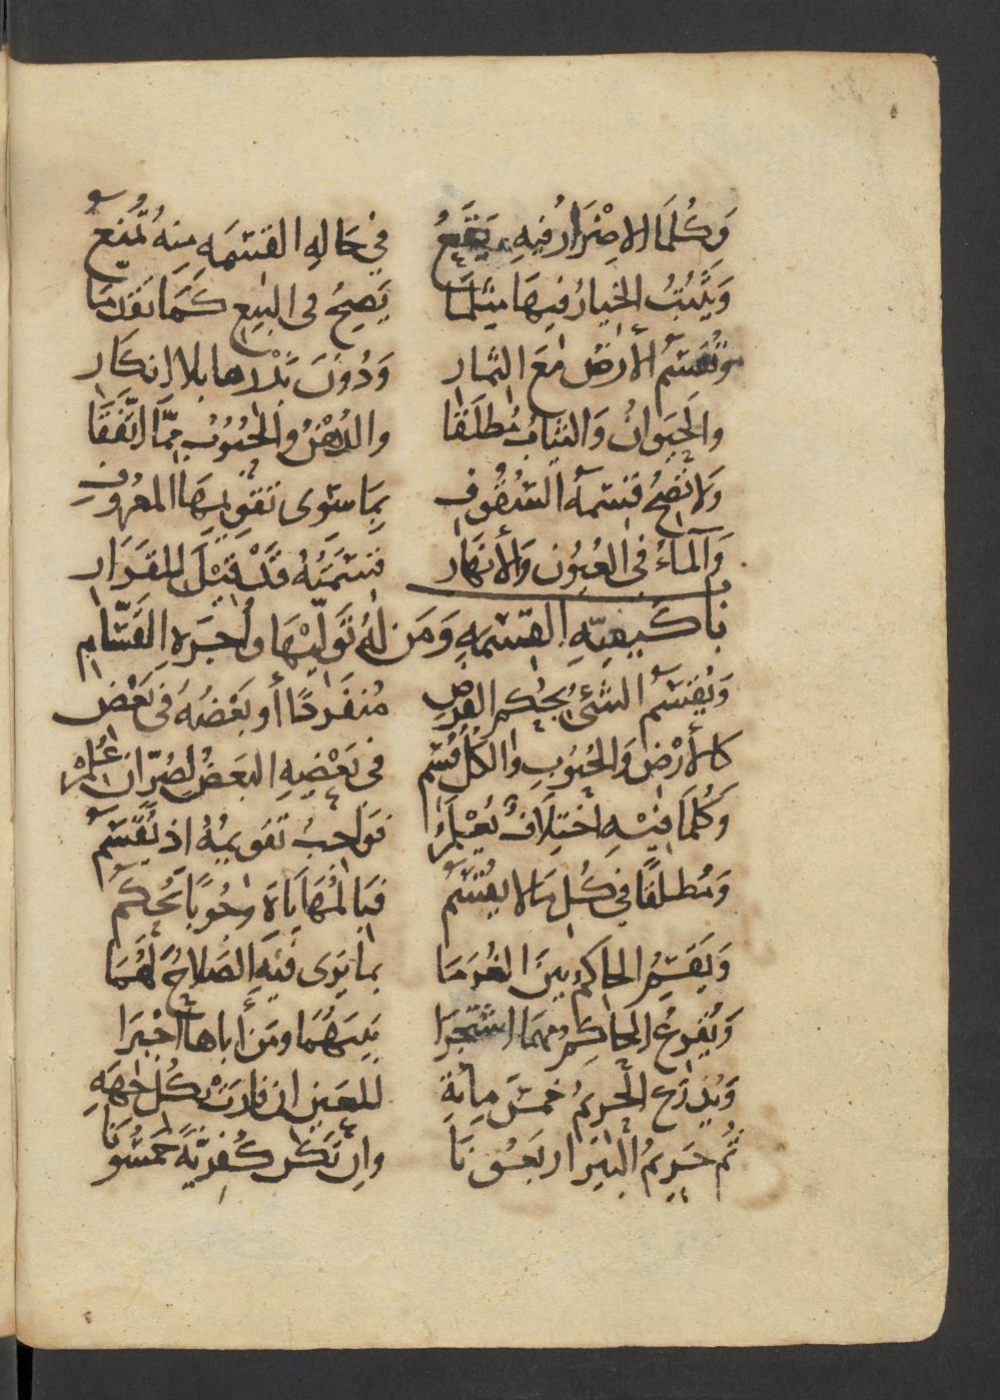 وَكُلَمَا الاِضْرَارُ فِيهِ يَقَعُ فِي حَالِهِ القسْمَه مِنهُ تُمْنَعُ
وَيَثْبُتُ الخِيارُ فِيهَا مِثْلَمَا يَصِحُ في البَيعِ كَمَا تَقَدمَا
وَتُقْسَمُ الأرْضُ مَعَ الثمارِ وَدُونَ بَذْرها بلا انكَارِ
والحَيَوانُ وَالثيَابُ مُطلَقَا والدُهْنُ والحُبُوبُ مِمَّا اتَّفَقَا
وَلا تَصِحُ قسْمَةُ السُقُوفِ بِمَا سَوى تَقويمهَا المعْرُوفِ
وَالماءُ في العُيُونِ وَالأنهَارِ قسْمَتُهُ قَدْ قِيْلَ للقَرَارِ
بَاب كَيفيّةِ القسْمَةِ وَمَن لهُ تَوَلّيْهَا وأجْرَة القَسَّامِ
وَيُقْسَمُ الشئُ بِحُكم الفَرضِ مُنفَرِدًا أو بَعْضُهُ في بَعْضِ
كالأرْضِ وَالحُبُوبِ والكُلُ قُسِمْ في بَعْضِهِ البَعضُ لضُرّ ان عُلِمْ
وَكُلَمَا فِيْهِ اخْتِلَافٌ يُعْلَمُ فَوَاجِبٌ تَقويمُهُ اذ يُقْسَمُ
وَمُطلَقًا في كُلِ مَا لا يُقْسَمُ فَبِالمُهَايَاة وجُوبًا يُحْكَمُ
وَيَقسِمُ الحاكِم بَينَ الغُرَمَا بما يَرَى فِيْهِ الصَلاحُ لَهُمَا
وَيُقْرِعُ الحَاكِم مهمَا اشتَجَرَا بَينَهُمَا ومَن أباها أجْبِرَا
وَيُذرَع الحَرِيمُ خمسَ مِائةِ للعَينِ ان فارَتْ بكُل جهَةِ
ثُم حَرِيمُ البئرِ اربَعُونَا وان تَكُن كُفريَّةً خمسُونَا